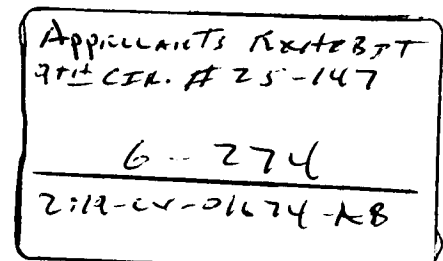 APPELLANTS EXHIBIT
9TH CIR. # 25-147
6-274
2:19-CV-01674-AB